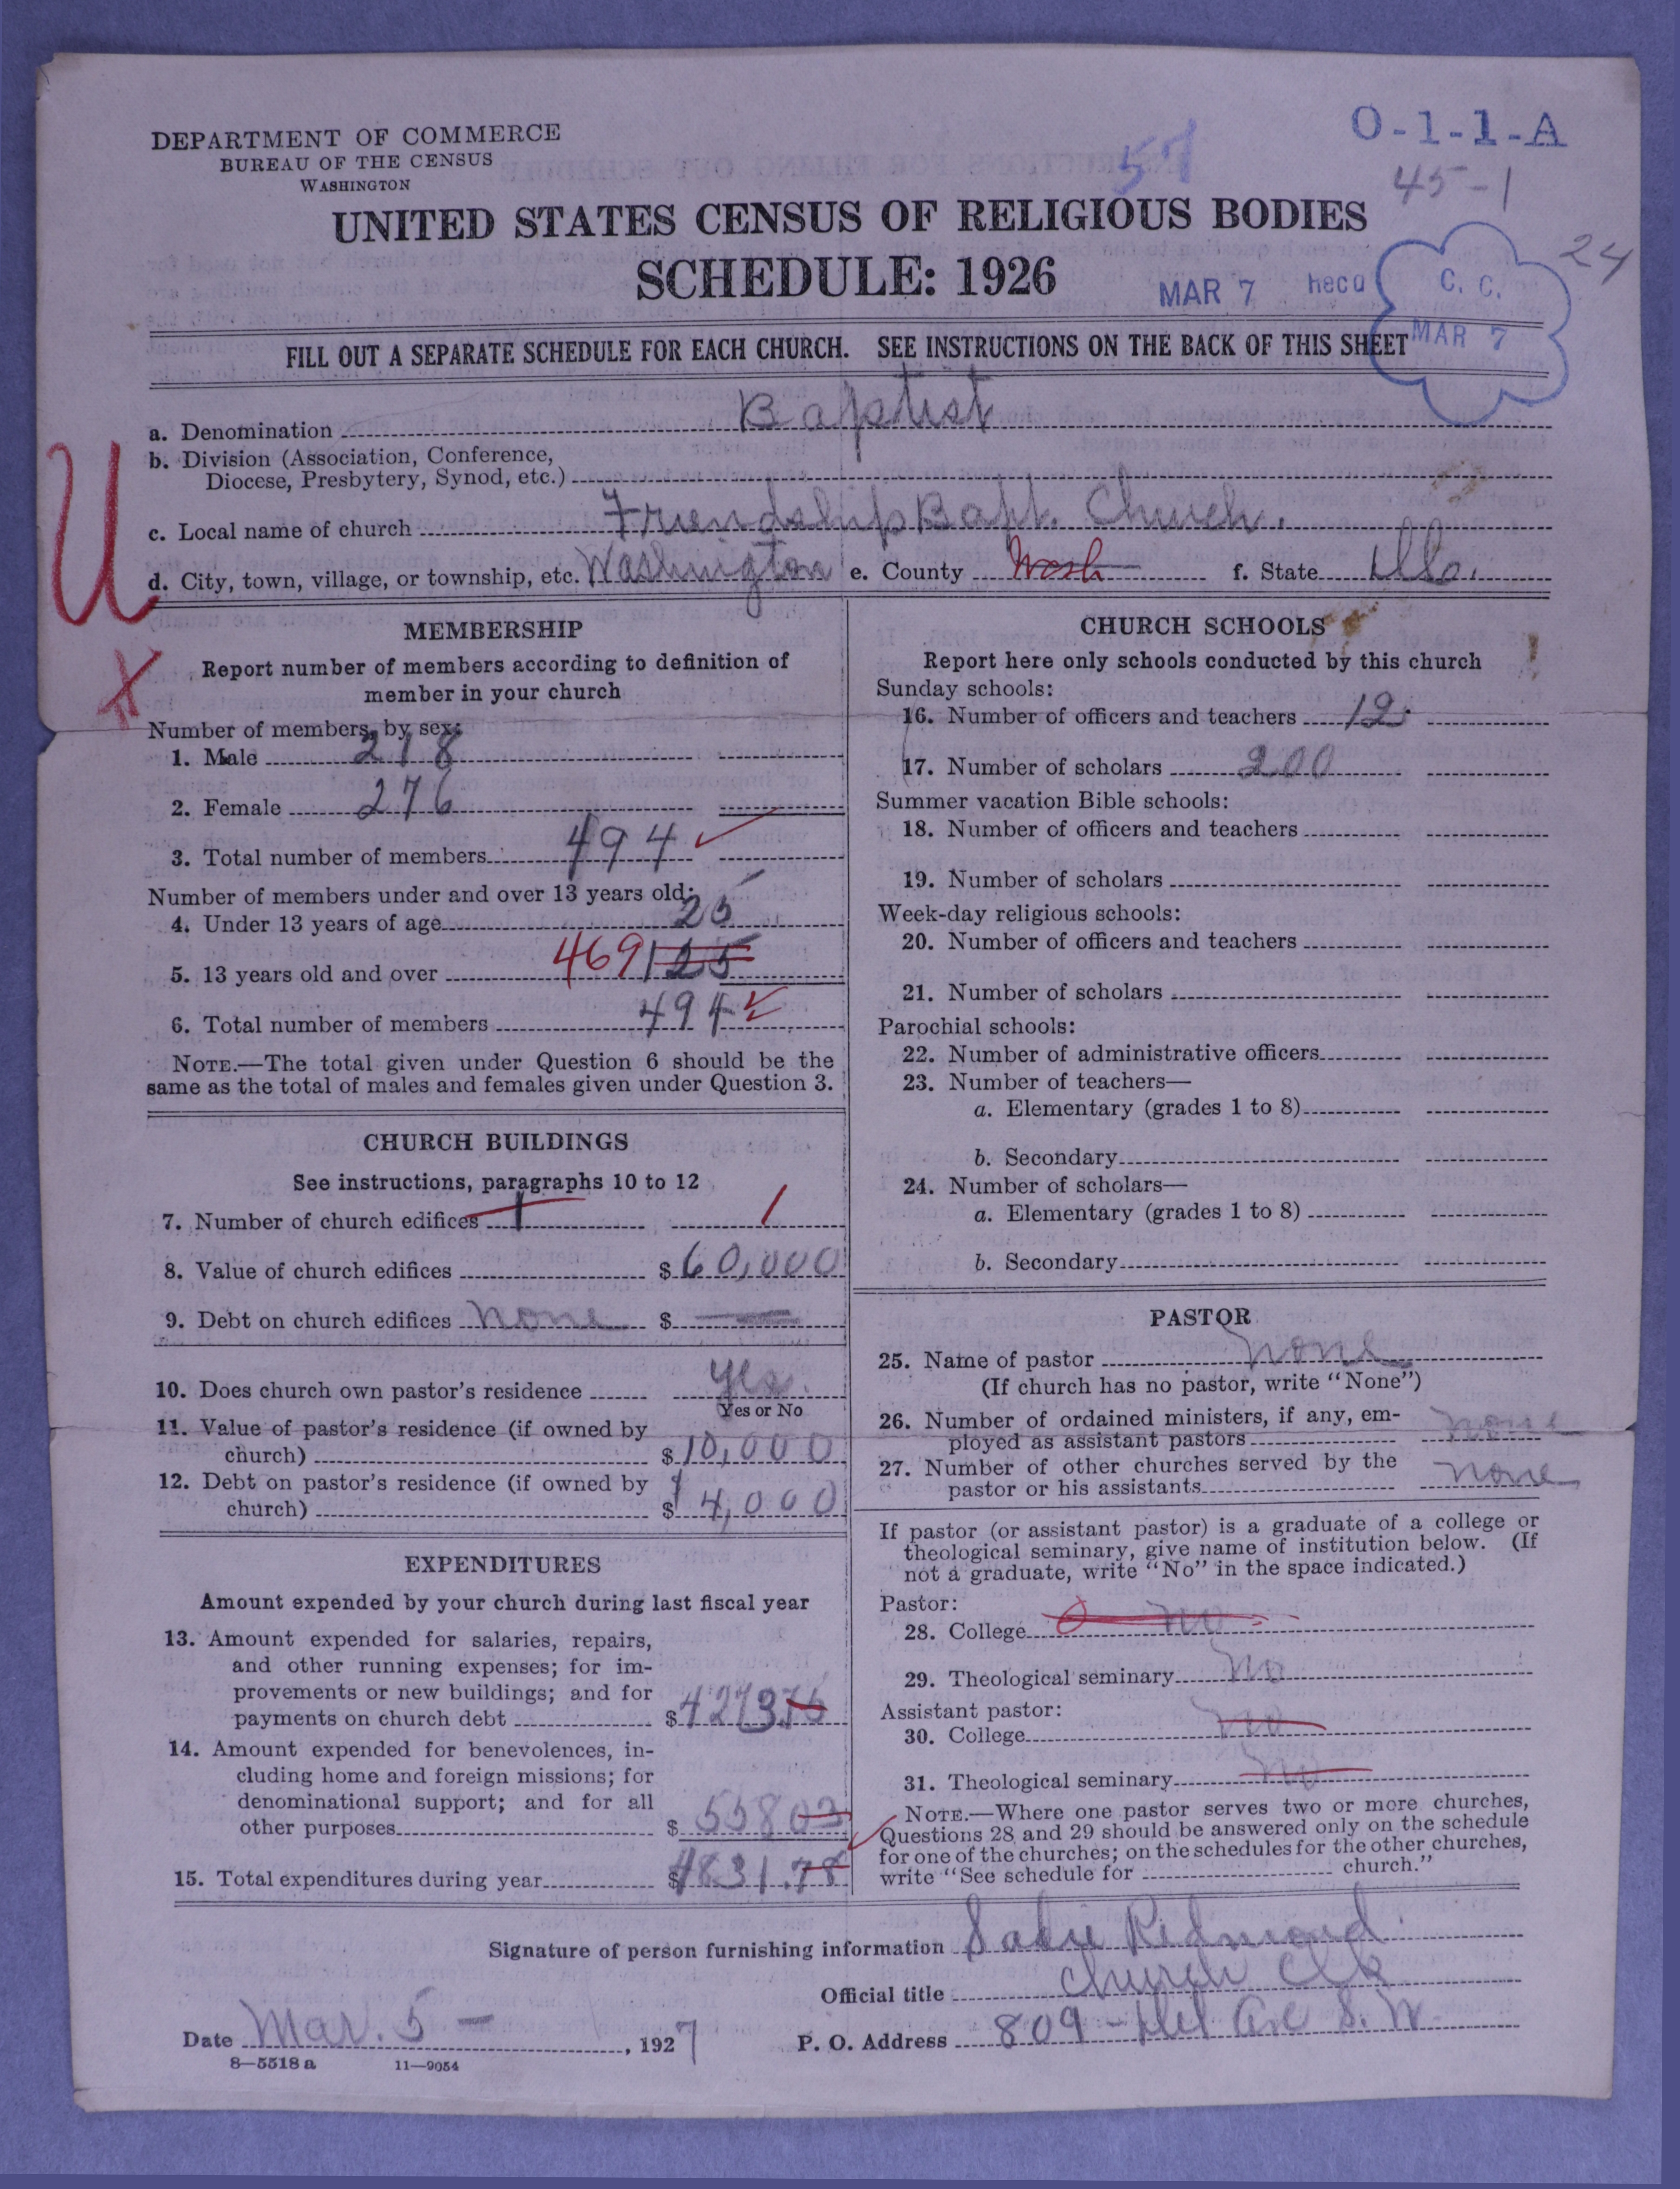 DEPARTMENT OF COMMERCE
BUREAU OF THE CENSUS
WASHINGTON
O-1-1-A
57
45-1
UNITED STATES CENSUS OF RELIGIOUS BODIES
SCHEDULE: 1926
24
MAR 7
C. C.
MAR 7
FILL OUT A SEPARATE SCHEDULE FOR EACH CHURCH. SEE INSTRUCTIONS ON THE BACK OF THIS SHEET
a. Denomination Baptist
b. Division (Association, Conference,
Diocese, Presbytery, Synod, etc.)
c. Local name of church Friendship Bapt. Church.
d. City, town, village, or township, etc. Washington e. County Wash f. State
U
MEMBERSHIP
Report number of members according to definition of
member in your church
Number of members, by sex:
1. Male 218
2. Female 276
3. Total number of members 494
Number of members under and over 13 years old:
4. Under 13 years of age 25
5. 13 years old and over 469 125
6. Total number of members 494
NOTE.—The total given under Question 6 should be the
same as the total of males and females given under Question 3.
CHURCH BUILDINGS
See instructions, paragraphs 10 to 12
7. Number of church edifices 1 1
8. Value of church edifices $ 60,000
9. Debt on church edifices none $
10. Does church own pastor's residence yes.
Yes or No
11. Value of pastor's residence (if owned by
church) $ 10,000
12. Debt on pastor's residence (if owned by
church) $ 4,000
EXPENDITURES
Amount expended by your church during last fiscal year
13. Amount expended for salaries, repairs,
and other running expenses; for im-
provements or new buildings; and for
payments on church debt $ 4273.76
14. Amount expended for benevolences, in-
cluding home and foreign missions; for
denominational support; and for all
other purposes $ 558 03
15. Total expenditures during year $ 4831.78
CHURCH SCHOOLS
Report here only schools conducted by this church
Sunday schools:
16. Number of officers and teachers 12
17. Number of scholars 200
Summer vacation Bible schools:
18. Number of officers and teachers
19. Number of scholars
Week-day religious schools:
20. Number of officers and teachers
21. Number of scholars
Parochial schools:
22. Number of administrative officers
23. Number of teachers—
a. Elementary (grades 1 to 8)
b. Secondary
24. Number of scholars—
a. Elementary (grades 1 to 8)
b. Secondary
PASTOR
25. Name of pastor none
(If church has no pastor, write "None")
26. Number of ordained ministers, if any, em-
ployed as assistant pastors none
27. Number of other churches served by the
pastor or his assistants none
If pastor (or assistant pastor) is a graduate of a college or
theological seminary, give name of institution below. (If
not a graduate, write "No" in the space indicated.)
Pastor:
28. College no
29. Theological seminary No
Assistant pastor:
30. College no
31. Theological seminary no
NOTE.—Where one pastor serves two or more churches,
Questions 28 and 29 should be answered only on the schedule
for one of the churches; on the schedules for the other churches,
write "See schedule for church."
Signature of person furnishing information Sadie Redmond
Official title Church Clk
Date Mar. 5 - , 1927 P. O. Address 809 - Del Ave S. W.
8—5518 a 11—9054